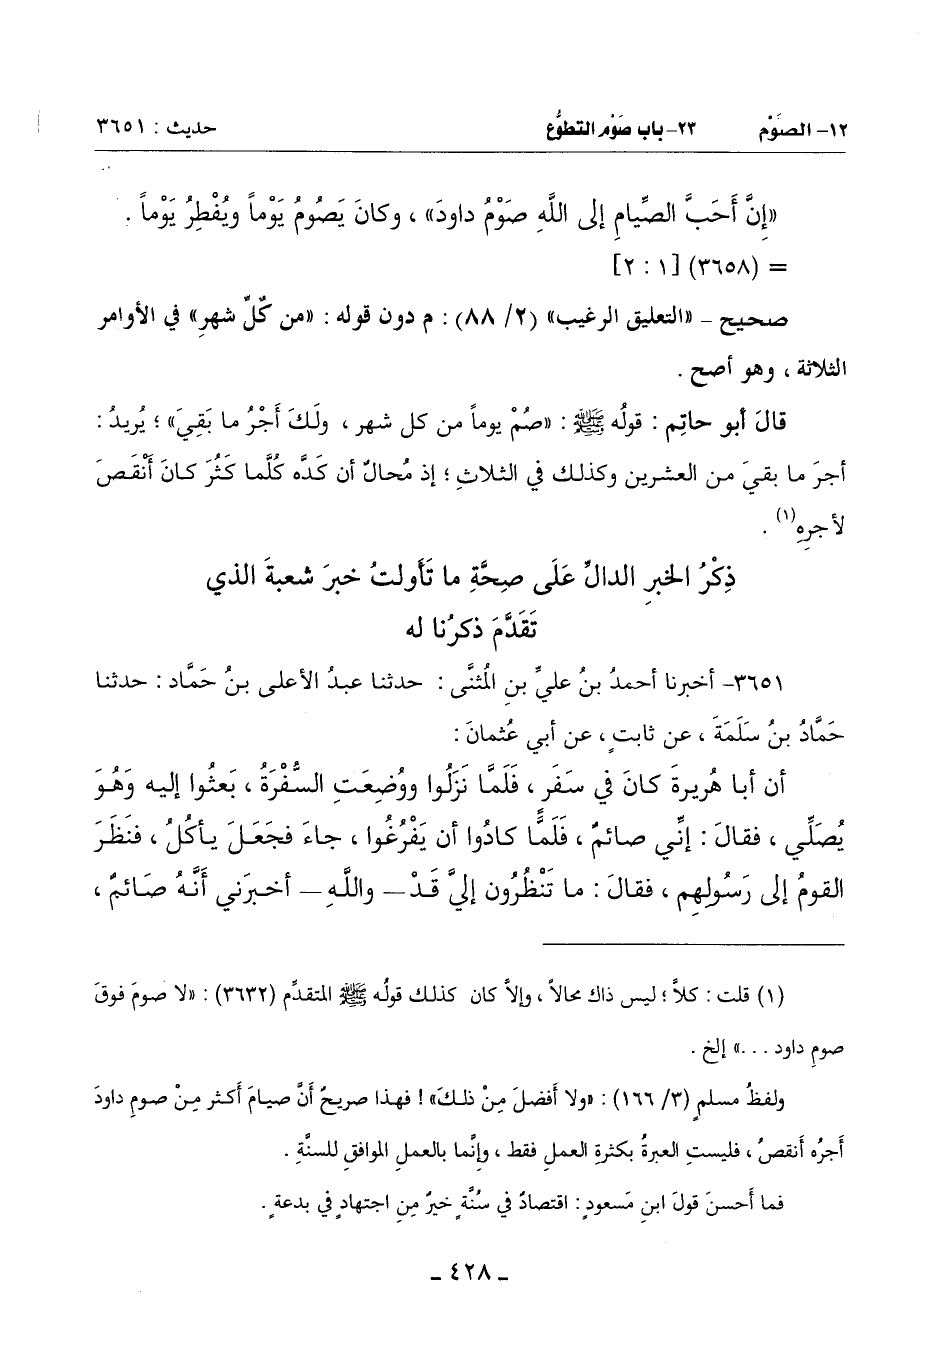 ١٢- الصَّوْم ٢٣- باب صَوْم التطوُّع حديث : ٣٦٥١
«إنَّ أَحَبَّ الصِّيامِ إلى اللَّهِ صَوْمُ داودَ» ، وكانَ يَصُومُ يَوْماً ويُفْطِرُ يَوْماً .
= (٣٦٥٨) [١ : ٢]
صحيح – «التعليق الرغيب» (٢/ ٨٨) : م دون قوله : «من كلِّ شهرٍ» في الأوامر
الثلاثة ، وهو أصح .
قالَ أبو حاتِم : قولُه ﷺ : «صُمْ يوماً من كل شهر ، ولَكَ أَجْرُ ما بَقِيَ» ؛ يُريدُ :
أجرَ ما بقيَ من العشرين وكذلك في الثلاثِ ؛ إذ مُحالٌ أن كَدَّه كُلَّما كَثُرَ كانَ أَنْقَصَ
لأجرِهِ(١) .
ذِكْرُ الخبرِ الدالِّ عَلَى صِحَّةِ ما تَأَولتُ خبرَ شعبةَ الذي
تَقَدَّمَ ذكرُنا له
٣٦٥١- أخبرنا أحمدُ بنُ عليِّ بنِ المُثنَّى : حدثنا عبدُ الأعلى بنُ حَمَّاد : حدثنا
حَمَّادُ بنُ سَلَمَةَ ، عن ثابتٍ ، عن أبي عُثمانَ :
أن أبا هُريرةَ كانَ في سَفَرٍ ، فَلَمَّا نَزَلُوا ووُضِعَتِ السُّفْرَةُ ، بَعثُوا إليه وَهُوَ
يُصَلِّي ، فقالَ : إنِّي صائمٌ ، فَلَمَّا كادُوا أن يَفْرُغُوا ، جاءَ فجَعَلَ يأكُلُ ، فنَظَرَ
القومُ إلى رَسُولِهِم ، فقالَ : ما تَنْظُرُون إليَّ قَدْ – واللَّهِ – أخبرَني أنَّهُ صَائمٌ ،
(١) قلت : كلاَّ ؛ ليس ذاك محالاً ، وإلاَّ كان كذلك قولُه ﷺ المتقدِّم (٣٦٣٢) : «لا صومَ فوقَ
صومِ داود . . .» إلخ .
ولفظُ مسلمٍ (٣/ ١٦٦) : «ولا أفضلَ مِنْ ذلكَ» ! فهذا صريحٌ أنَّ صيامَ أكثر مِنْ صومِ داودَ
أجرُه أنقصُ ، فليستِ العبرةُ بكثرةِ العملِ فقط ، وإنَّما بالعملِ الموافقِ للسنَّةِ .
فما أحسنَ قولَ ابنِ مَسعودٍ : اقتصادٌ في سُنَّةٍ خيرٌ مِنِ اجتهادٍ في بدعةٍ .
– ٤٢٨ –